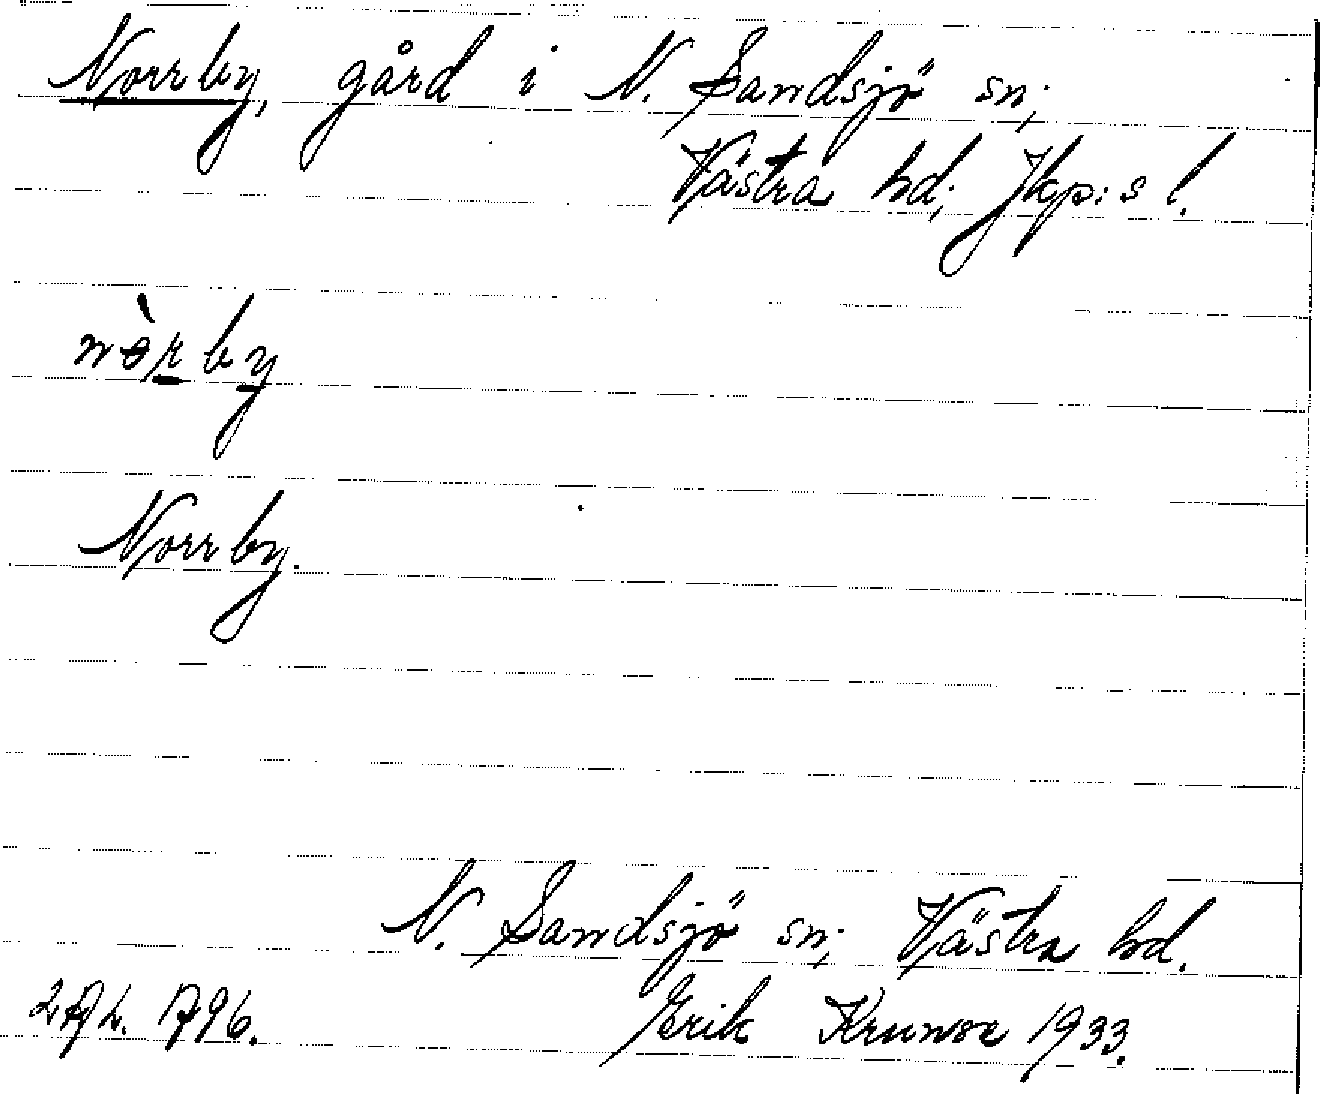 Norrby, gård i N. Sandsjö sn;
Västra hd; Jkp:s l.
nòrby
Norrby.
N. Sandsjö sn; Västra hd.
1796. Erik 1933.